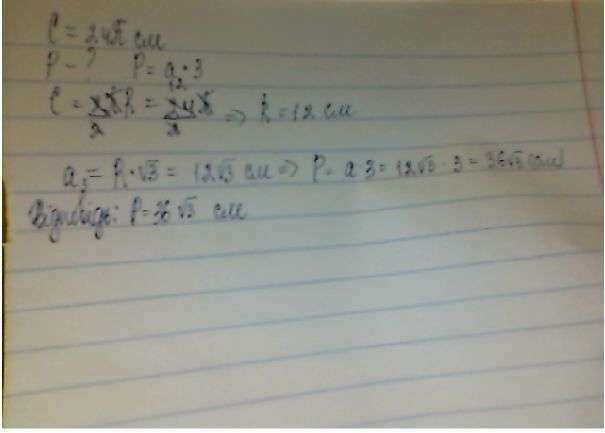 C = 24π см
P - ? P = a · 3
C = 2πR = 24π ⇒ R = 12 см
12
2 2
a₃ = R · √3 = 12√3 см ⇒ P = a · 3 = 12√3 · 3 = 36√3 (см)
Відповідь: P = 36√3 см